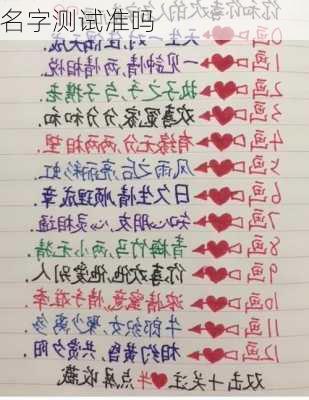 名字测试准吗
你和你喜欢的人
0画♥天生一对,住隔天成.
1画♥一见钟情,两情相悦.
2画♥执子之手,与子携老.
3画♥欢喜冤家,分分和和.
4画♥有缘无分,两两相望.
5画♥风雨之后,亮丽彩虹.
6画♥日久生情,顺理成章.
7画♥知心朋友,心灵相通.
8画♥青梅竹马,两小无猜.
9画♥你喜欢他,他爱别人.
10画♥浓情蜜意,情于难牵.
11画♥牛郎织女,聚少离多.
12画♥相约黄昏,共赏夕阳.
双击+关注
点屏收藏